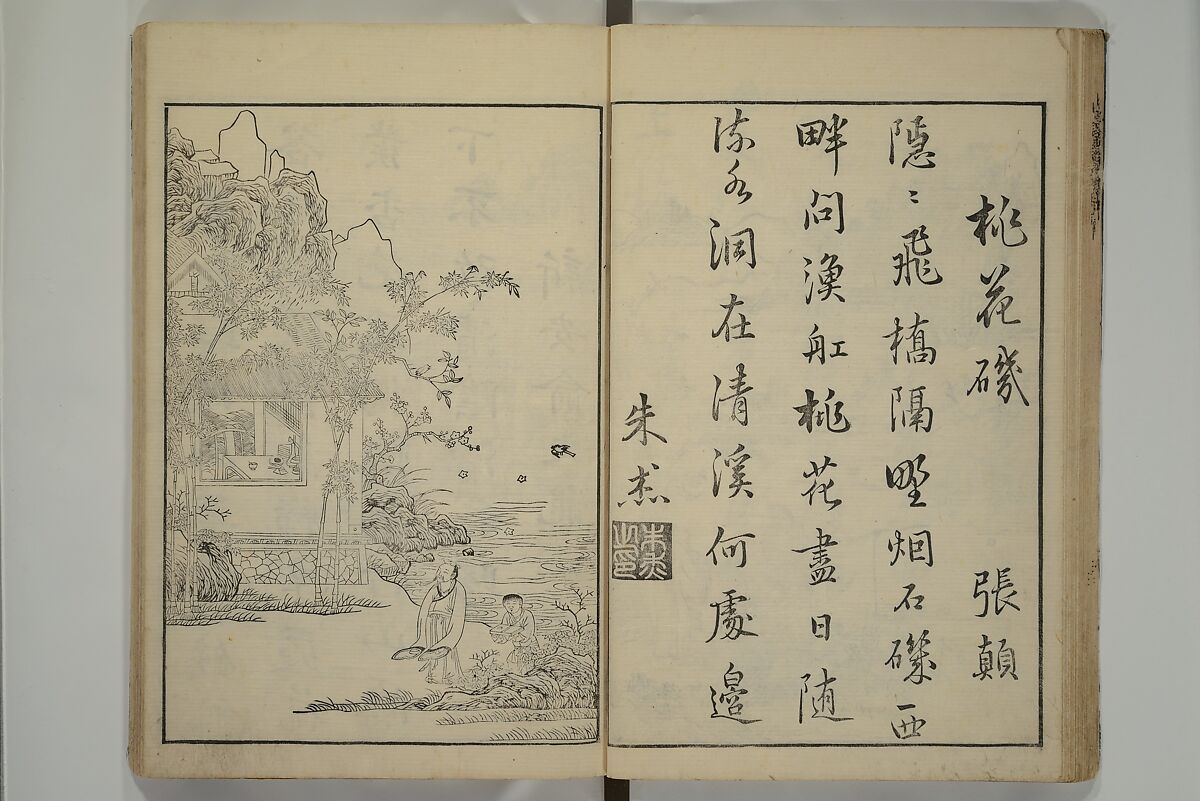 桃花磯 張顛
隱〻飛橋隔野烟石磯西
畔問漁舡桃花盡日随
流水洞在清溪何處邉
朱杰